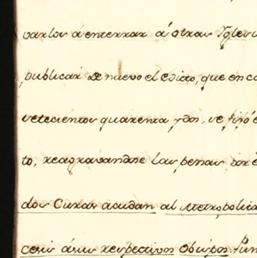 varlos á enterrar á otras Igles
publicar de nuevo el edicto, que en co
setecientos quarenta y dos, se fijó é
to, reagravandose las penas
dos Curas acudan al Metropolita
cesir á sus respectivos Obispos